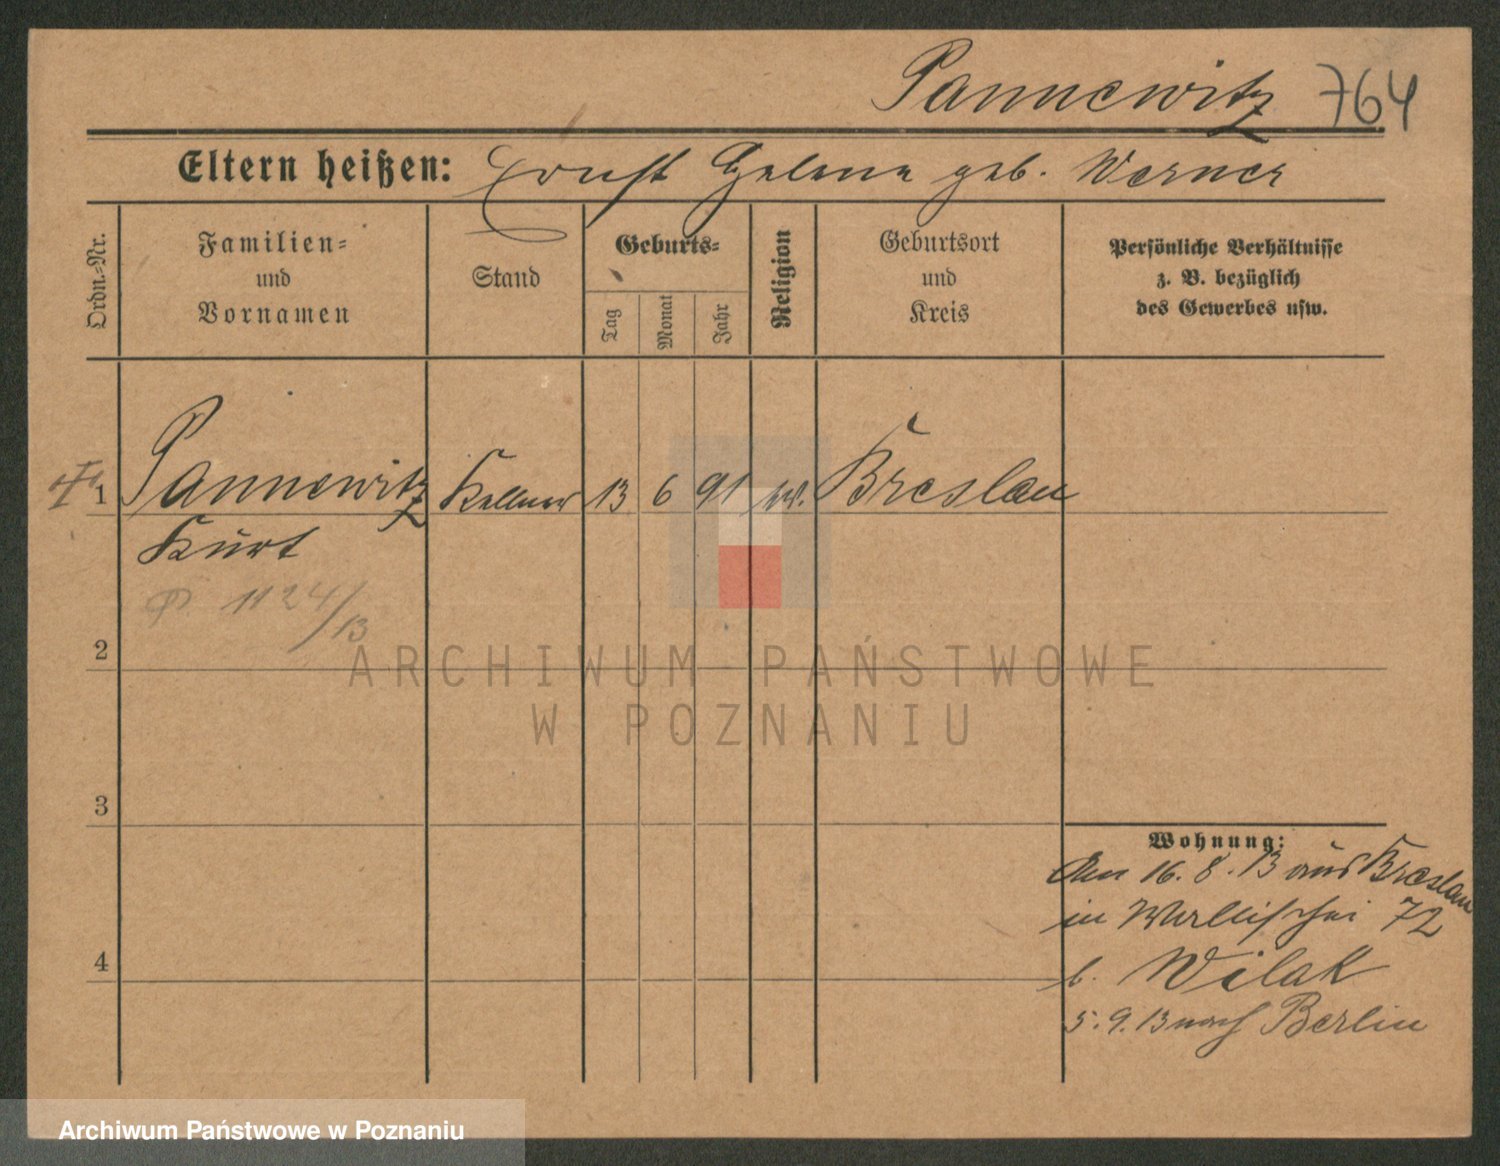 Pannewitz 764
Eltern heißen: Ernst Helene geb. Werner
Ordn.-Nr.
Familien-
und
Vornamen
Stand
Geburts-
Tag
Monat
Jahr
Religion
Geburtsort
und
Kreis
Persönliche Verhältnisse
z. B. bezüglich
des Gewerbes usw.
1 Pannewitz Kellner 13 6 91 Breslau
Kurt
1124/13
2
ARCHIWUM PAŃSTWOWE
W POZNANIU
3
Wohnung:
Am 16. 8. 13 aus Breslau
in Wallischei 72
b. Wilak
4
5. 9. 13 nach Berlin
Archiwum Państwowe w Poznaniu